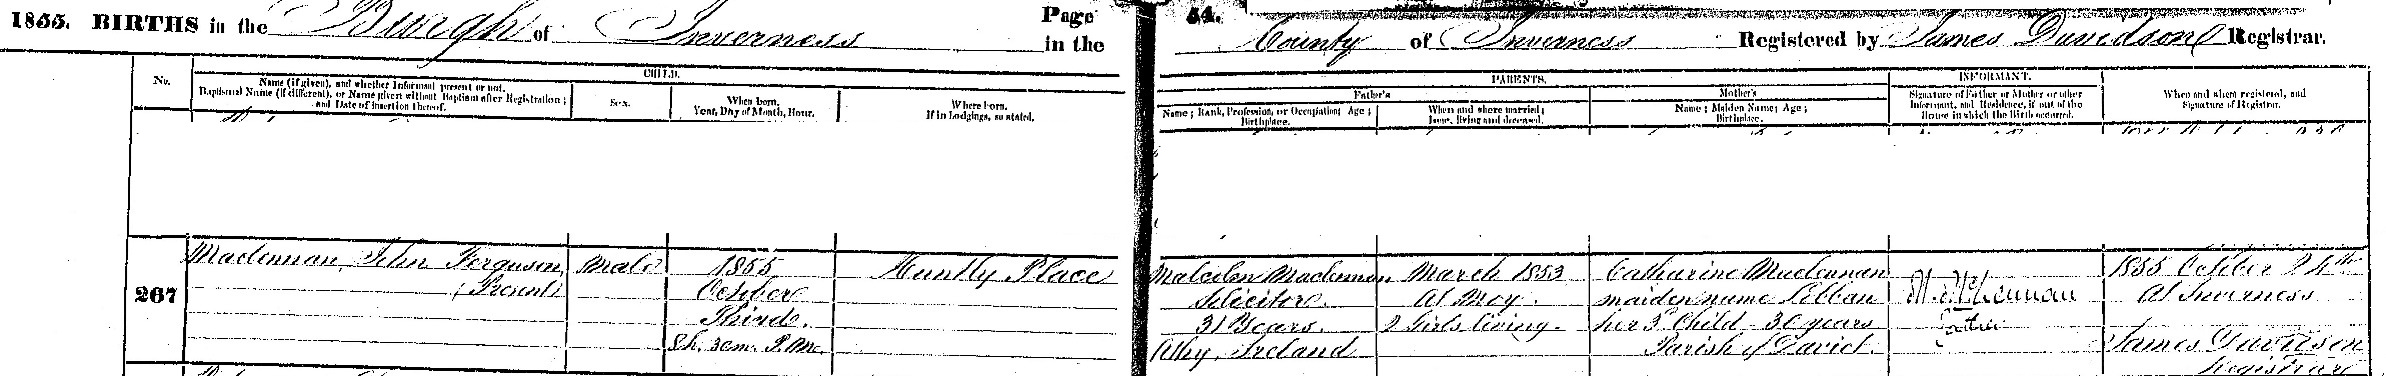 1855. BIRTHS in the Burgh of Inverness Page 54.
in the County of Inverness Registered by James Davidson Registrar.
No.
CHILD.
Name (if given), and whether Informant present or not.
Baptismal Name (if different), or Name given without Baptism after Registration;
and Date of insertion thereof.
Sex.
When born.
Year, Day of Month, Hour.
Where born.
If in Lodgings, so stated.
PARENTS.
Father's
Name; Rank, Profession, or Occupation; Age;
Birthplace.
When and where married;
Issue, living and deceased.
Mother's
Name; Maiden Name; Age;
Birthplace.
INFORMANT.
Signature of Father or Mother or other
Informant, and Residence, if out of the
House in which the Birth occurred.
When and where registered, and
Signature of Registrar.
267
Maclennan, John Ferguson
(Present)
Male
1855
October
Third.
8h. 30m. P.M.
Huntly Place
Malcolm Maclennan
Solicitor.
31 Years.
Athy, Ireland
March 1853
At Moy.
2 Girls living.
Catharine Maclennan
maiden name
her 3d Child - 30 years
Parish of David.
McLennan
father
1855 October 24th
At Inverness
James Davidson
Registrar